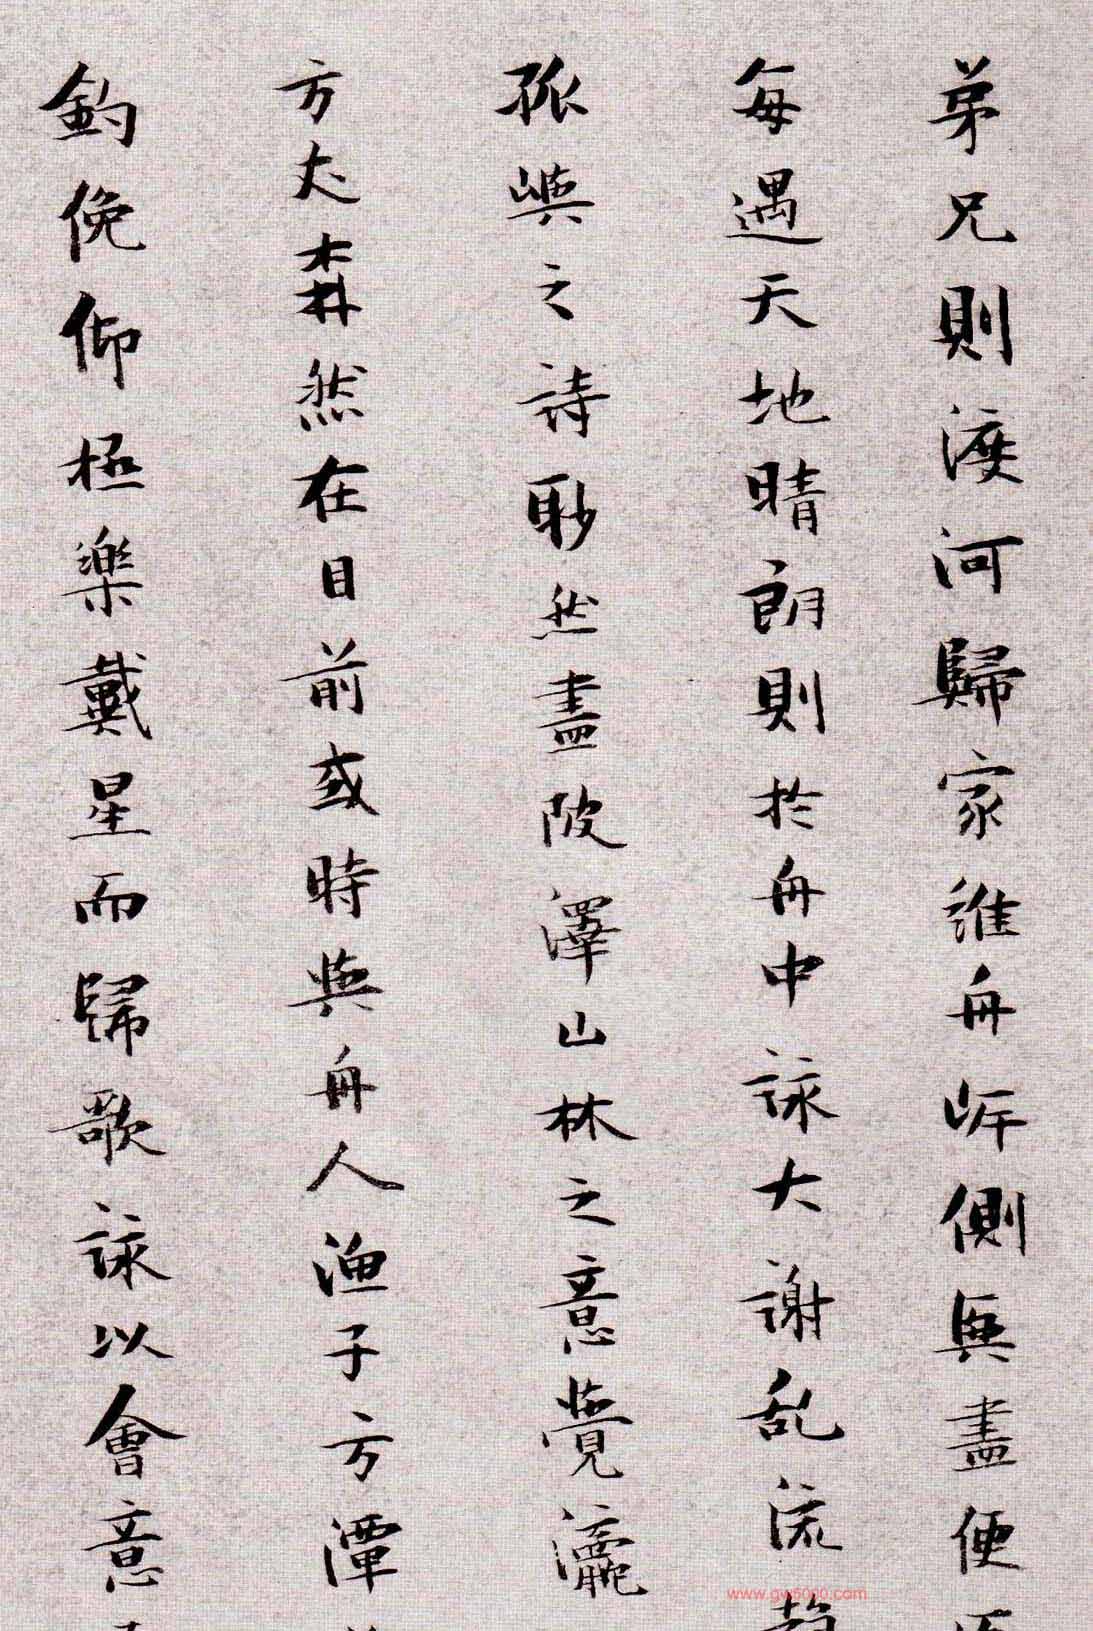 弟兄則渡河歸家維舟岍側興盡便
每遇天地晴朗則於舟中詠大謝乱流
孤嶼之詩眇然盡陂澤山林之意覺瀛
方丈森然在目前或時與舟人漁子方潭
釣俛仰極樂戴星而歸歌詠以會意
www.gw5000.com